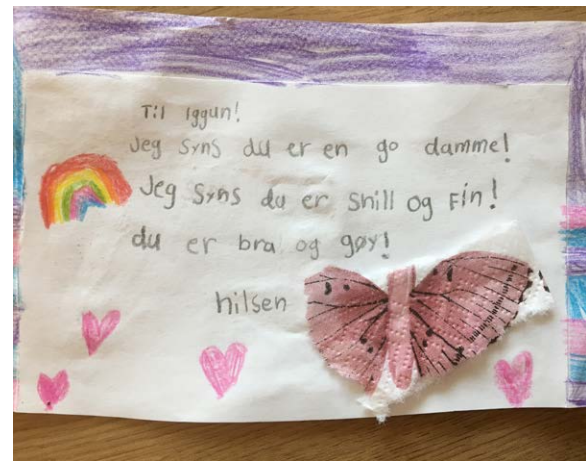 Til Iggun!
Jeg Syns du er en go damme!
Jeg Syns du er Snill og Fin!
du er bra og gøy!
hilsen